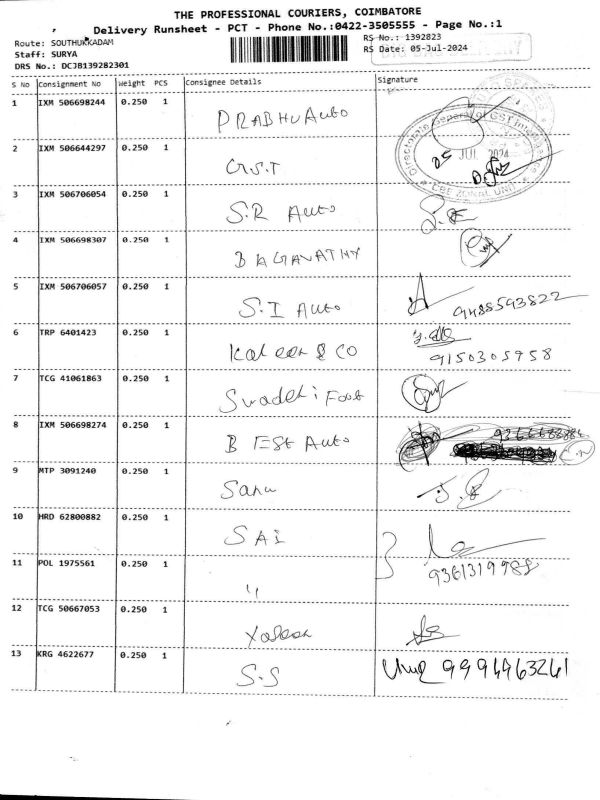 THE PROFESSIONAL COURIERS, COIMBATORE
Delivery Runsheet - PCT - Phone No.:0422-3505555 - Page No.:1
Route: SOUTHUKKADAM
RS No.: 1392823
Staff: SURYA
RS Date: 05-Jul-2024
DRS No.: DCJB139282301
S No Consignment No Weight PCS Consignee Details Signature
1 IXM 506698244 0.250 1 PRABHU AUTO
Directorate General of GST Intelligence
2 IXM 506644297 0.250 1 G.S.T 05 JUL 2024
CBE ZONAL UNIT
3 IXM 506706054 0.250 1 S.R AUTO
4 IXM 506698307 0.250 1 BAGAVATHY
5 IXM 506706057 0.250 1 S.I AUTO 9488593822
6 TRP 6401423 0.250 1 & CO 9150305958
7 TCG 41061863 0.250 1
8 IXM 506698274 0.250 1 BEST AUTO
9 MTP 3091240 0.250 1 Sanu
10 HRD 62800882 0.250 1 SAI
11 POL 1975561 0.250 1 " 9361319988
12 TCG 50667053 0.250 1
13 KRG 4622677 0.250 1 S.S 9994963241